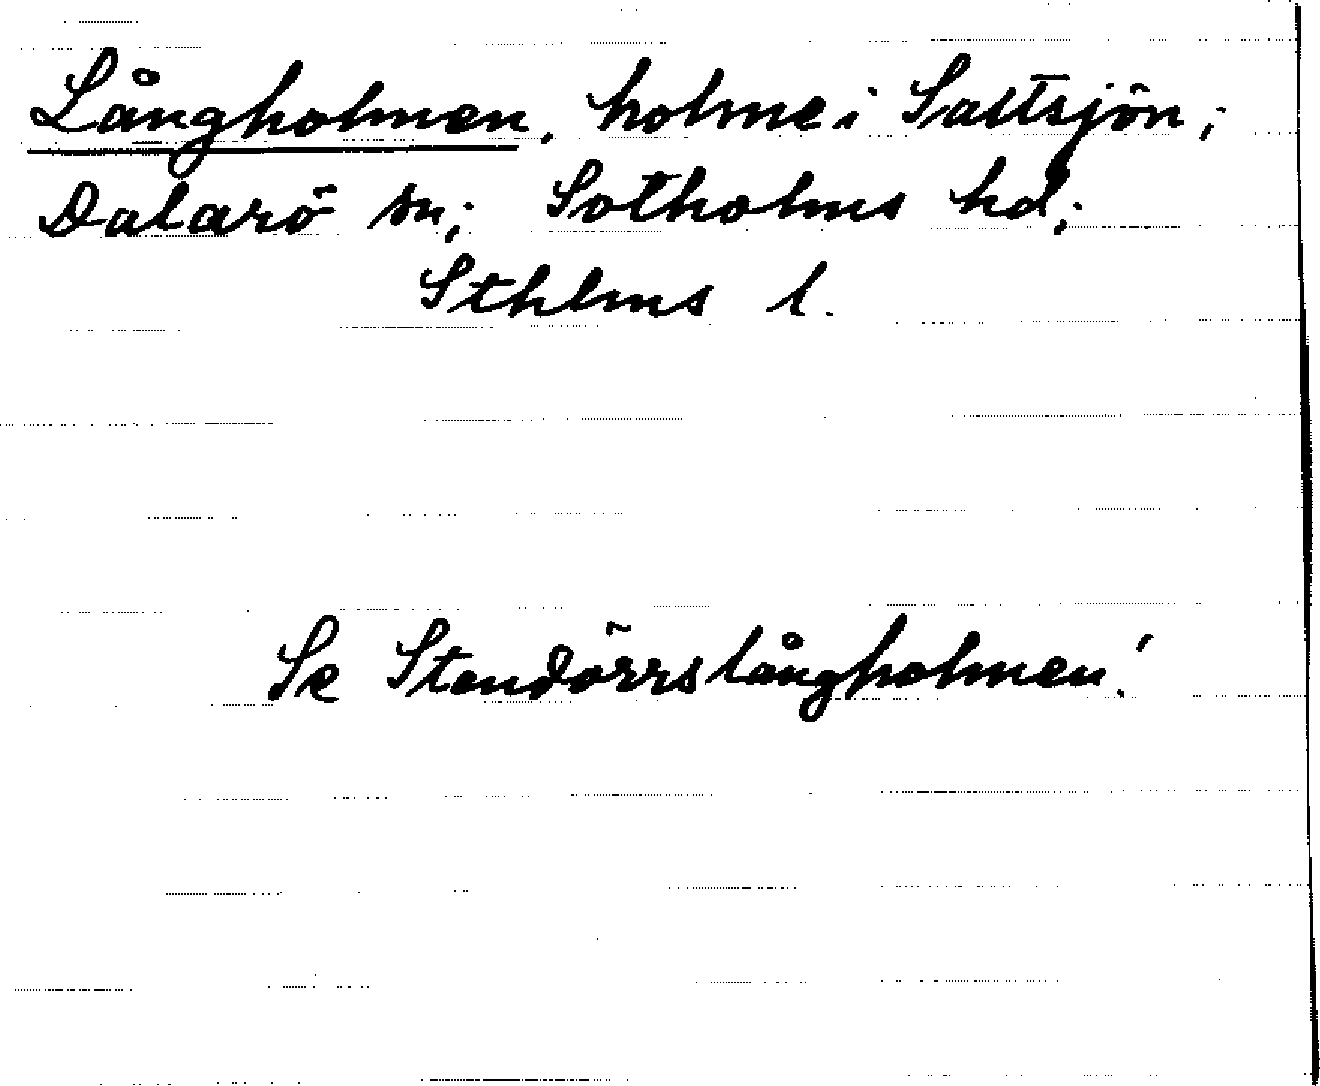 Långholmen, holme i Saltsjön;
Dalarö sn; Sotholms hd;
Sthlms l.
Se Stendörrslångholmen!